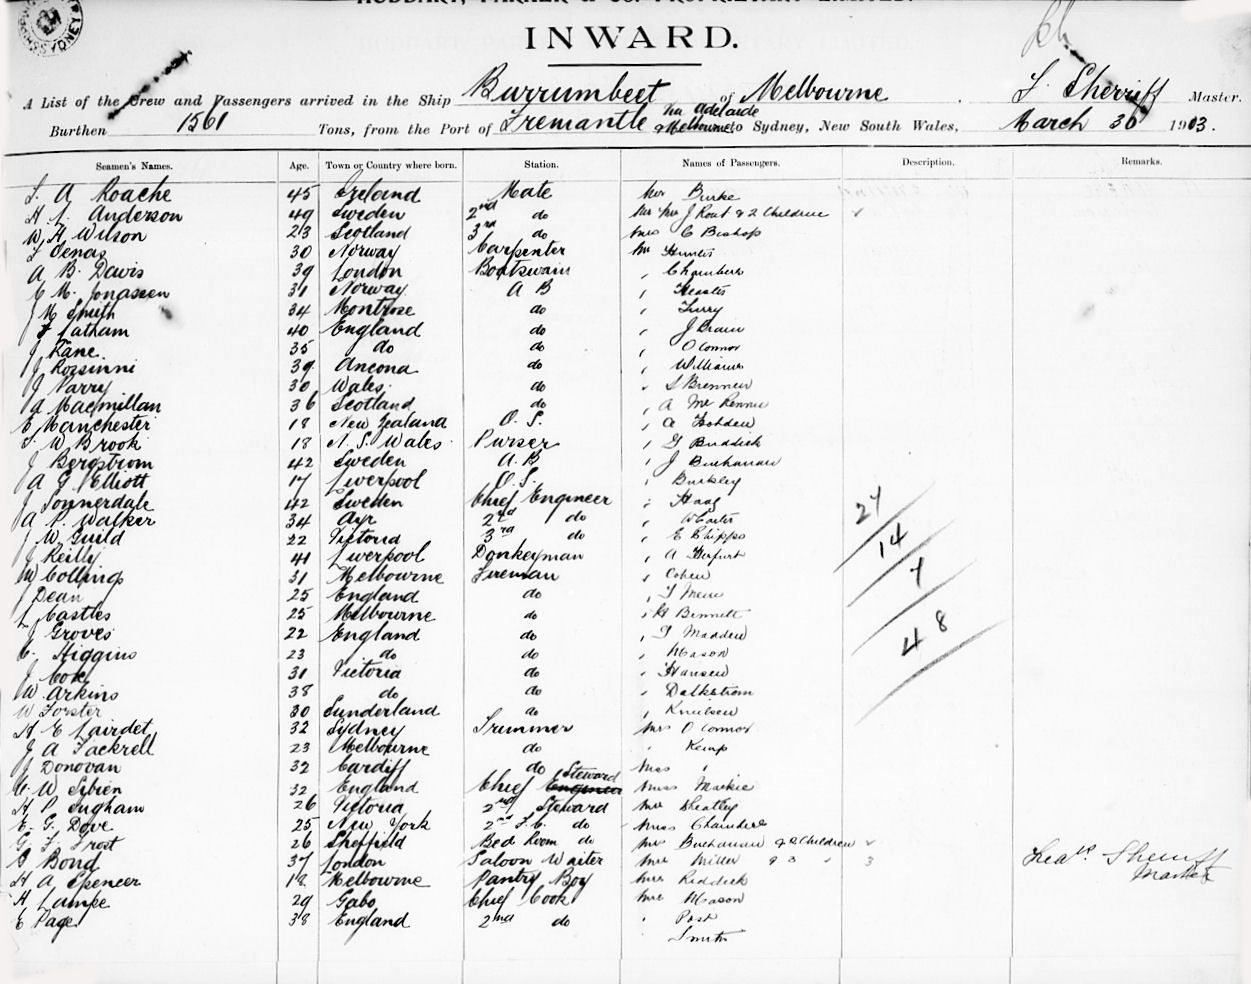 HUDDART, PARKER & CO. PROPRIETARY LIMITED.
INWARD.
A List of the Crew and Passengers arrived in the Ship Burrumbeet of Melbourne . Sherriff Master.
Burthen 1561 Tons, from the Port of Fremantle via Adelaide & Melbourne to Sydney, New South Wales, March 30 1903.
Seamen's Names. Age. Town or Country where born. Station. Names of Passengers. Description. Remarks.
A Roache 45 Ireland Mate Mr Burke
Anderson 49 Sweden 2nd do Mr Mrs J Rout & 2 Children
W H Wilson 23 Scotland 3rd do Mrs C Bishop
30 Norway Carpenter Mr Hunter
A B Davis 39 London Boatswain " Chambers
C M Jonassen 31 Norway A B "
J M Smith 34 Montrose do "
Latham 40 England do " J Brain
J Kane. 35 do do " O Connor
J Rossinni 39 Ancona do " Williams
J Parry 30 Wales do " Brennen
A Macmillan 36 Scotland do " A
E Manchester 18 New Zealand O. S. " A Holden
W Brook 18 N. S. Wales Purser " G Ruddick
J Bergstrom 42 Sweden A. B " J Buchanan
A G Elliott 17 Liverpool O. S. "
J Sonnerdale 42 Sweden Chief Engineer " Haag
A Walker 34 Ayr 2nd do "
J W Guild 22 Victoria 3rd do " E Chipps
J Reilly 41 Liverpool Donkeyman " A
W Collings 31 Melbourne Fireman " Cohen
J Dean 25 England do "
Castles 25 Melbourne do " H Bennett
J Groves 22 England do " Madden
C. Higgins 23 do do " Mason
J Cook 31 Victoria do " Hansen
W Arkins 38 do do " Dalkstrom
W Forster 30 Sunderland do " Knudsen
H E 32 Sydney Trimmer Mrs O Connor
J A Fackrell 23 Melbourne do " Kemp
J Donovan 32 Cardiff do Miss "
W 32 England Chief Engineer Steward Miss Mackie
H P Ingham 26 Victoria 2nd Steward Mr Wheatley
E. G. Dove 25 New York 2nd do Miss Chandler
G F Frost 26 Sheffield Bed Room do Mrs Buchanan & 2 Children
G Bond 37 London Saloon Waiter Mrs Miller & 3 " 3
H A Spencer 18 Melbourne Pantry Boy Mrs Riddick
H Lampe 29 Gabo Chief Cook Mrs Mason
E Page 38 England 2nd do " Post
" Smith
27
14
7
48
Sherriff
Master